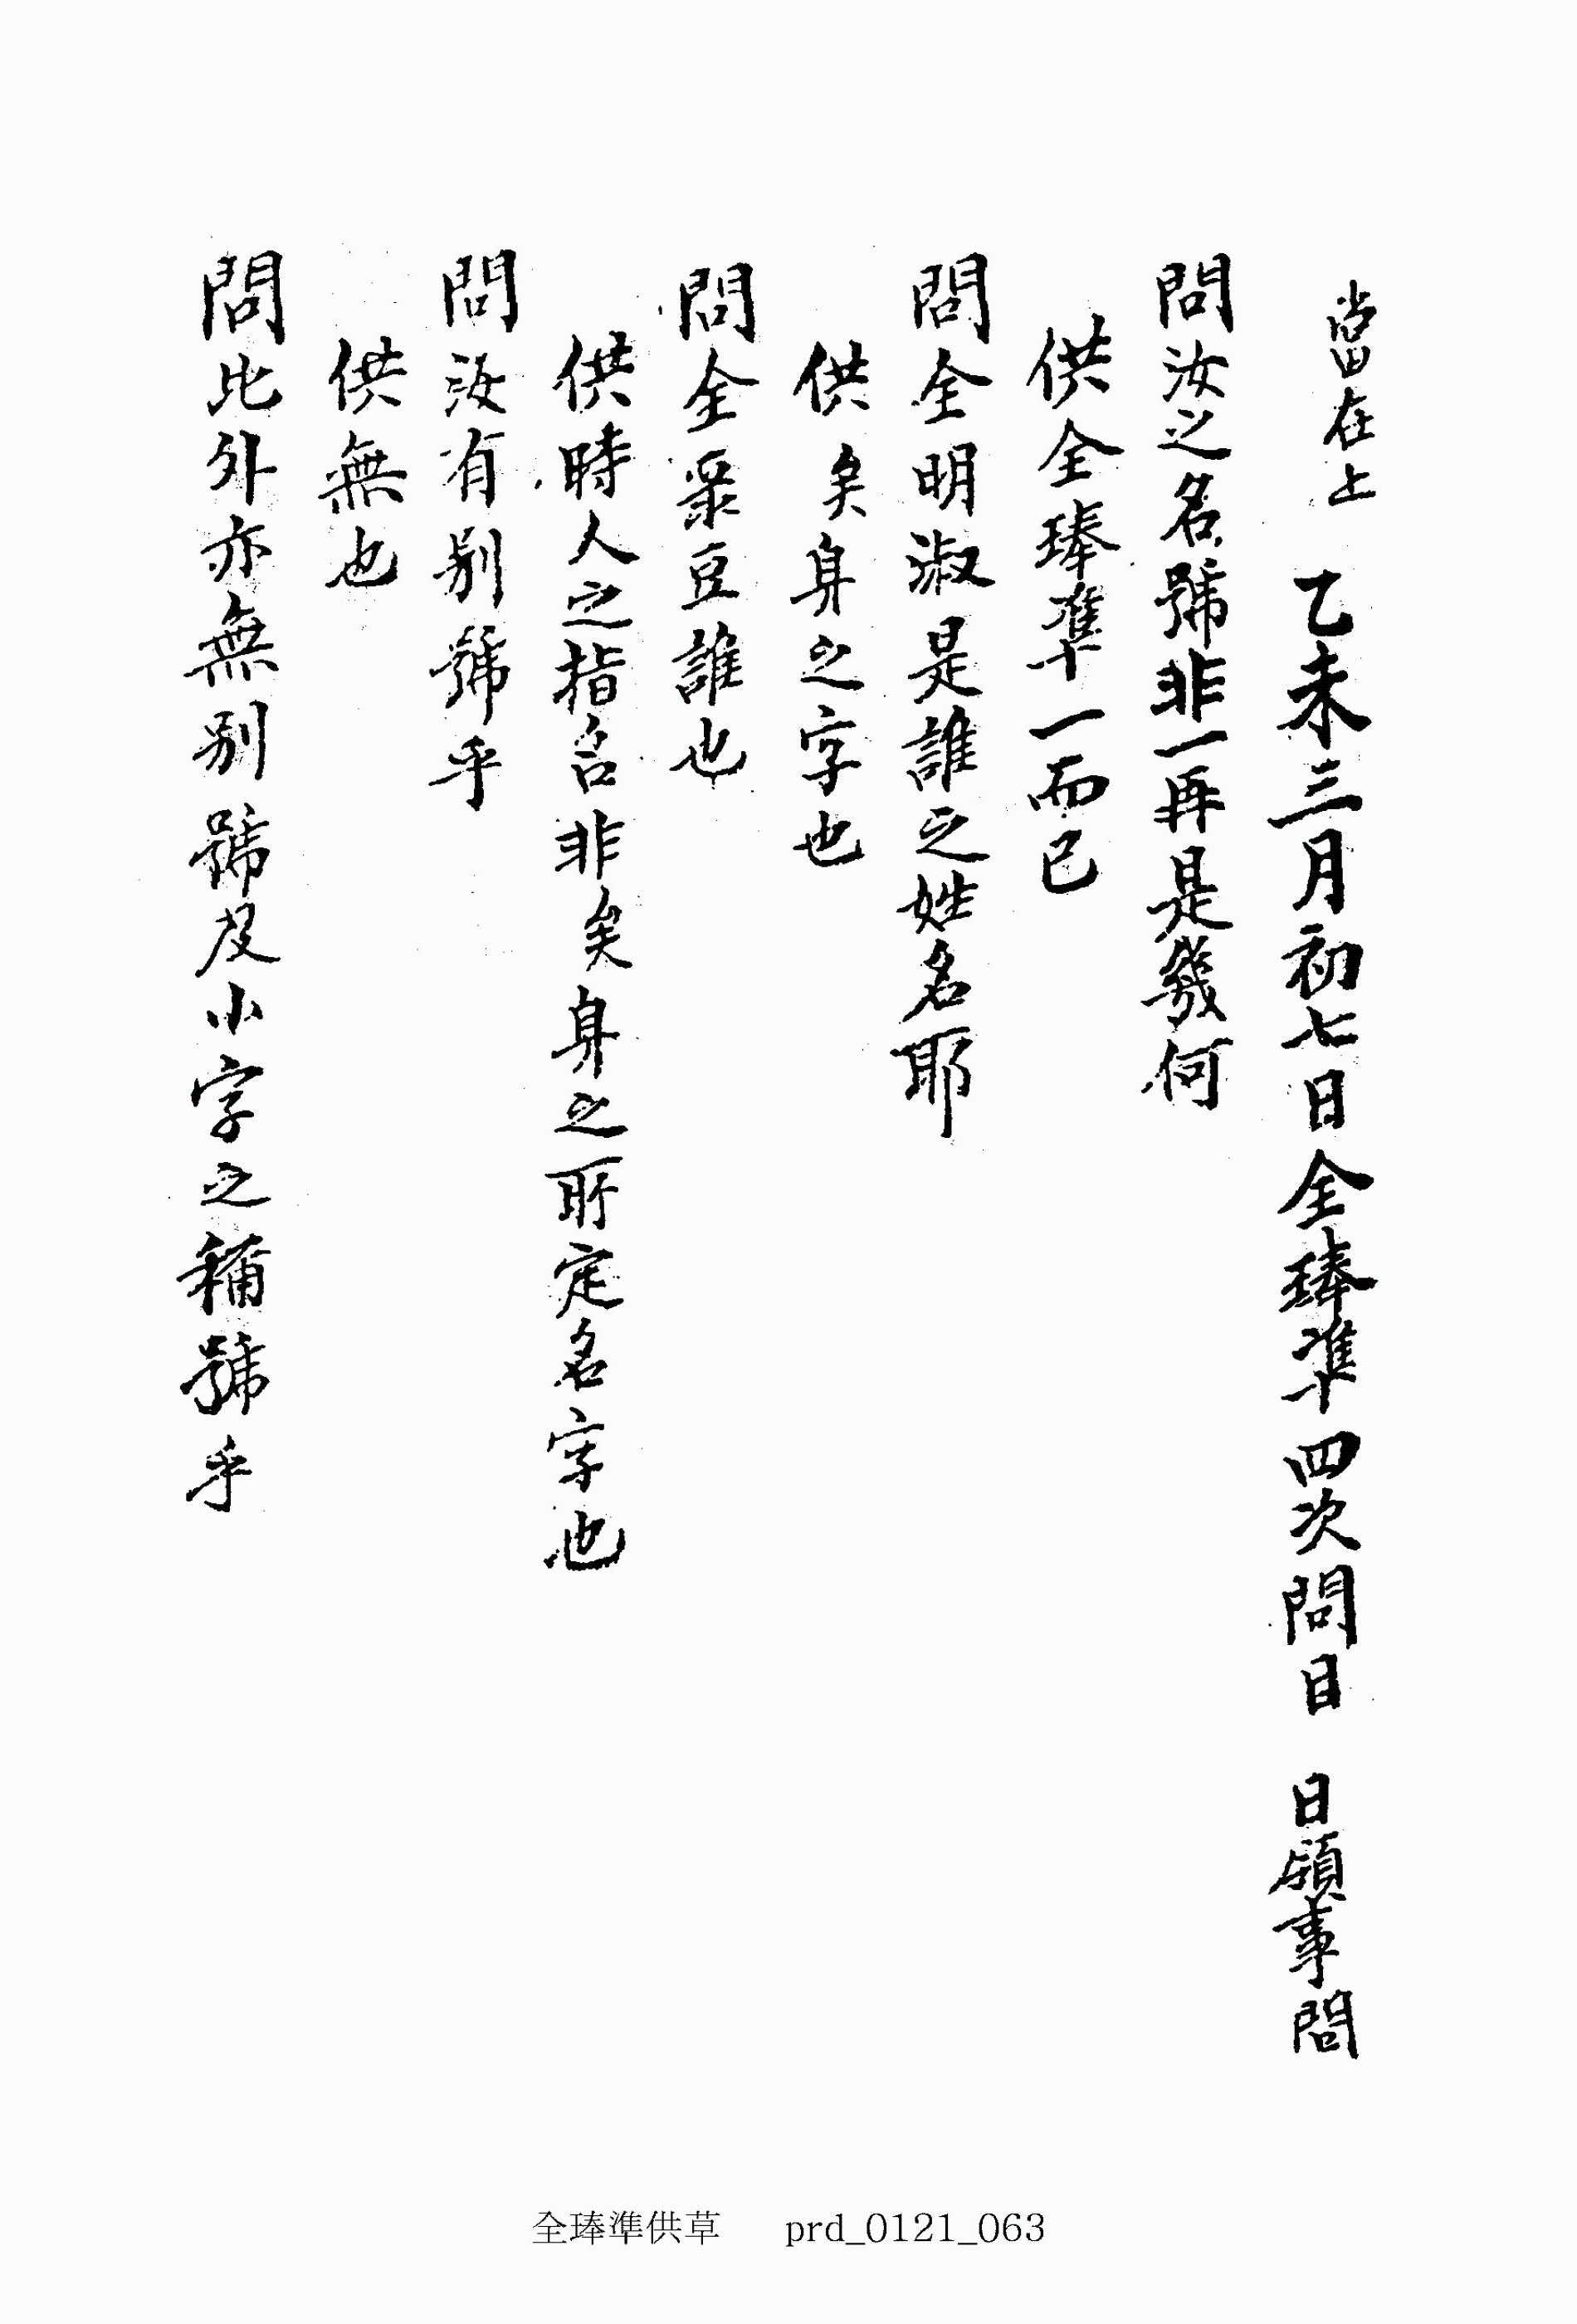 當在上 乙未三月初七日全琫準四次問目 日領事問
問汝之名號非一再是幾何
供全琫準一而已
問全明淑是誰之姓名耶
供矣身之字也
問全彔豆誰也
供時人之指名非矣身之所定名字也
問汝有別號乎
供無也
問此外亦無別號及小字之稱號乎
全琫準供草 prd_0121_063